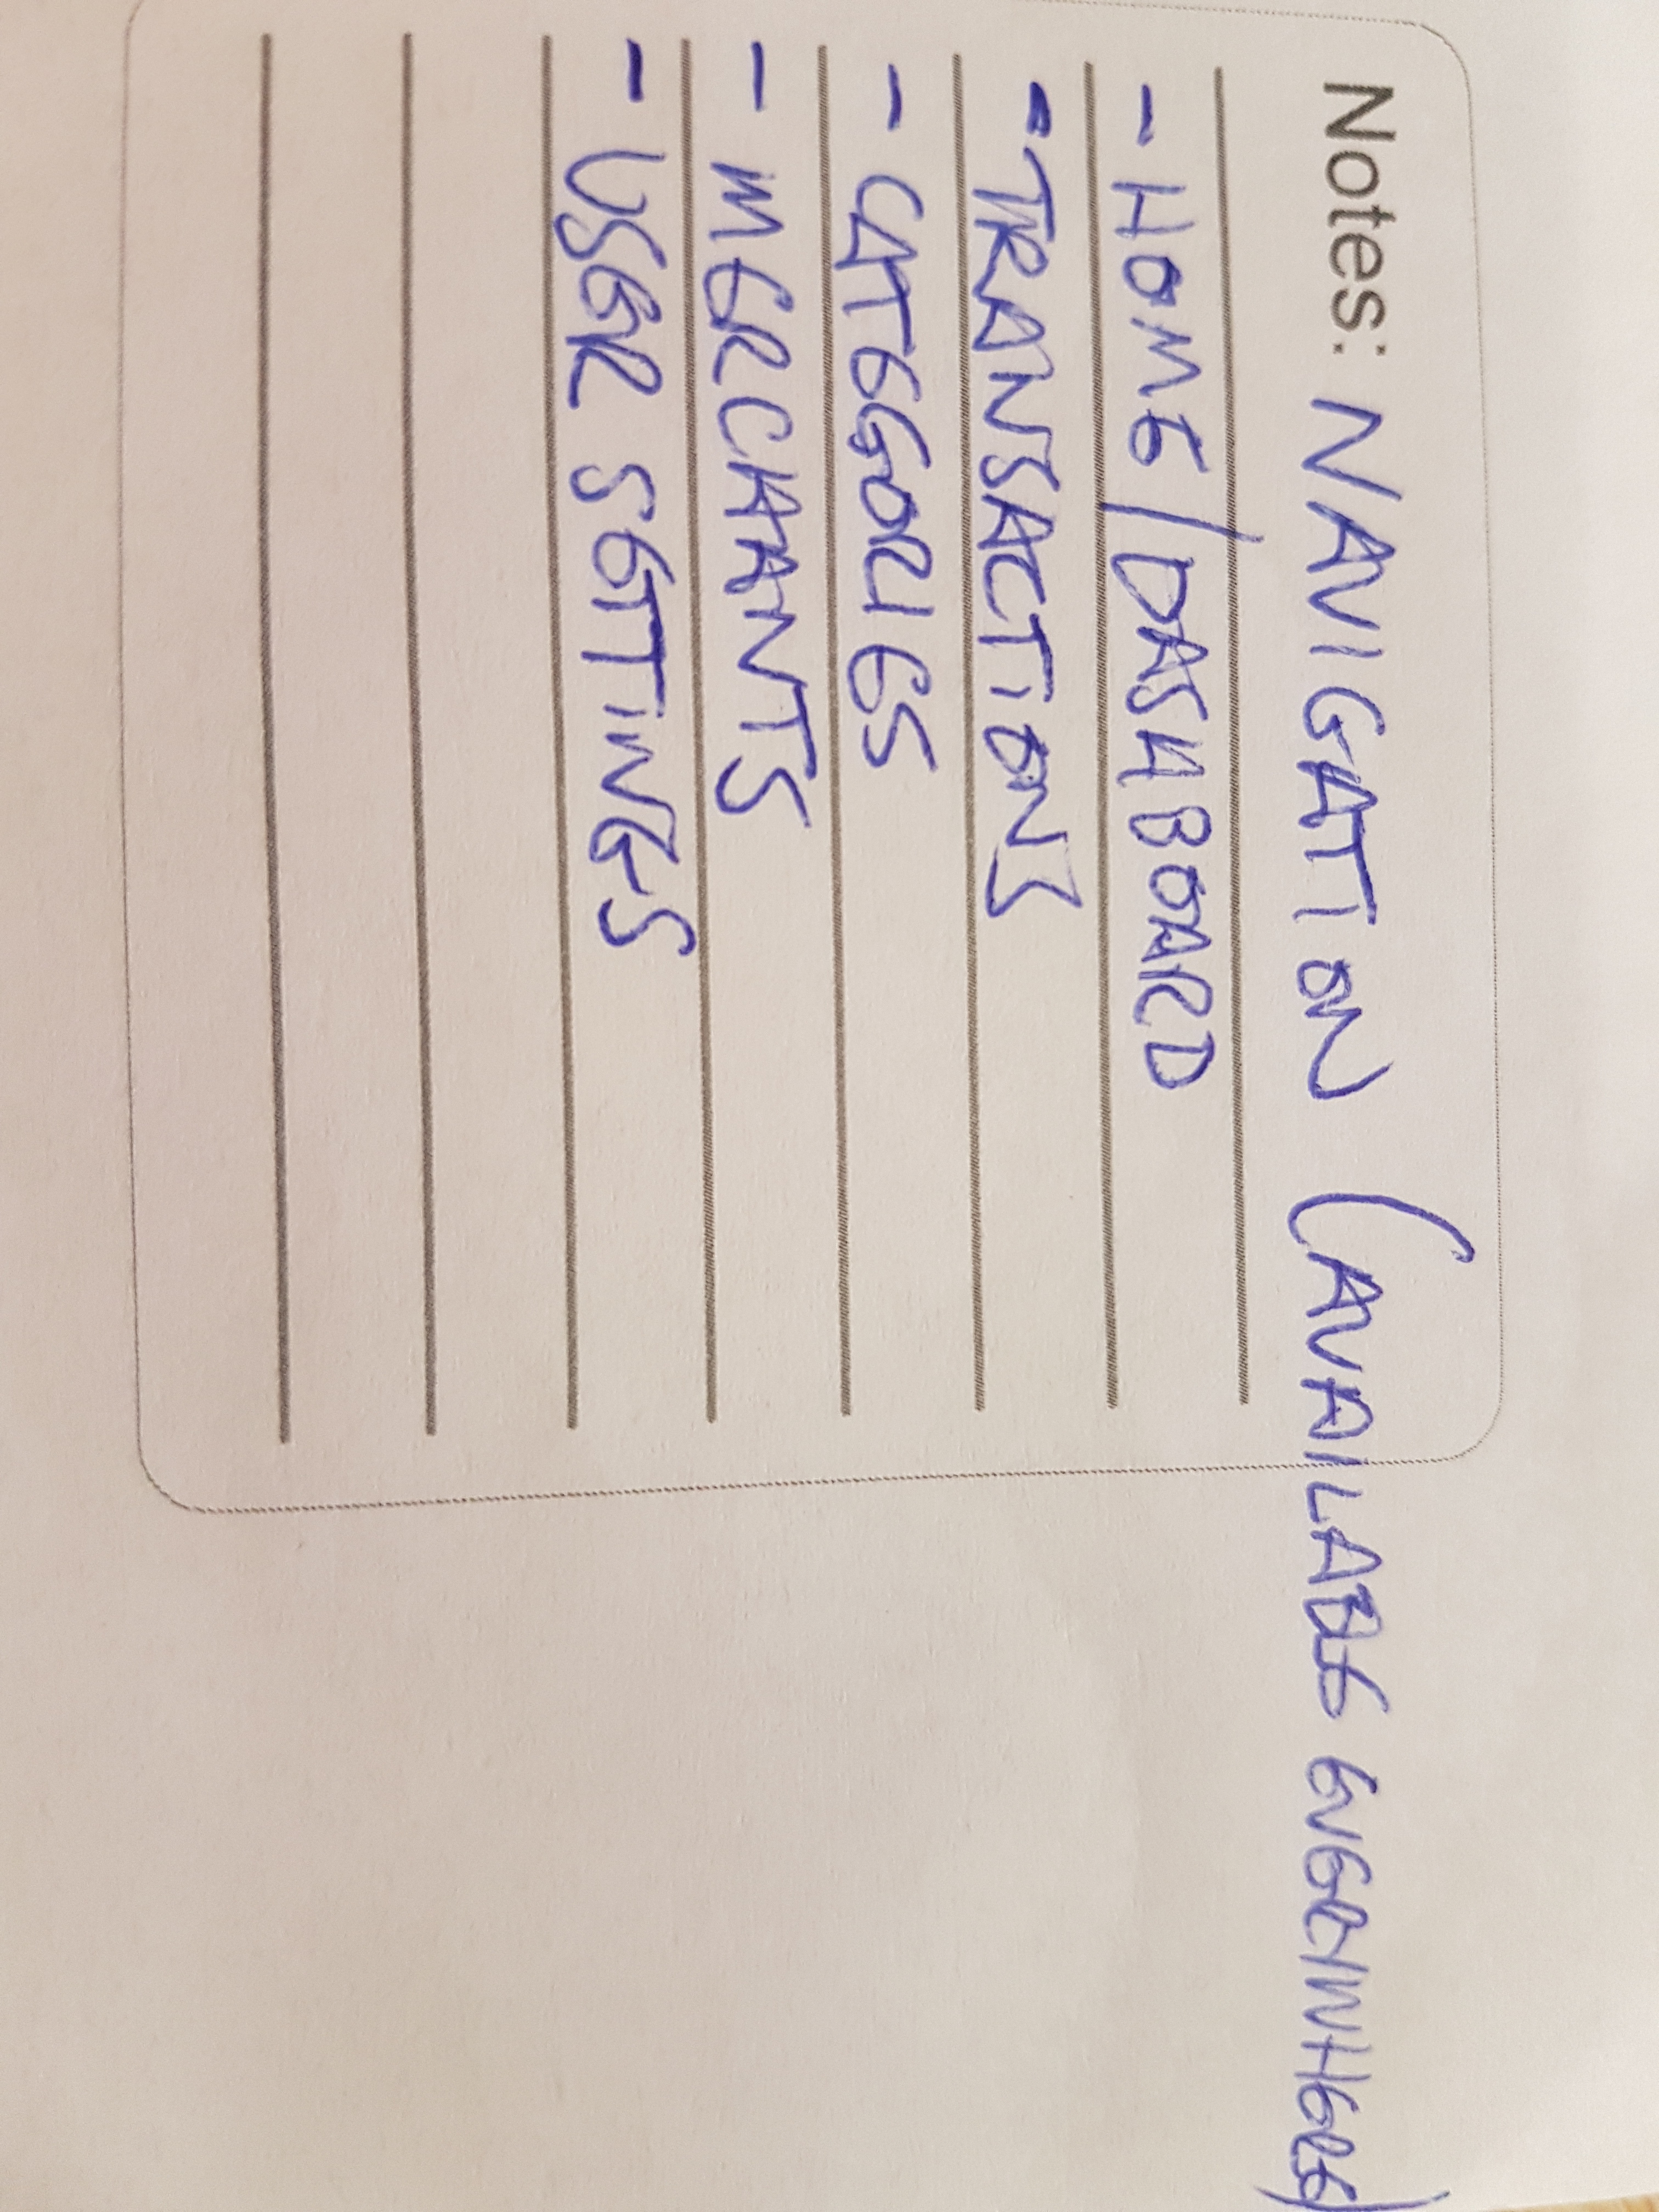 Notes: NAVIGATION (AVAILABLE EVERYWHERE)
- HOME/DASHBOARD
- TRANSACTIONS
- CATEGORIES
- MERCHANTS
- USER SETTINGS